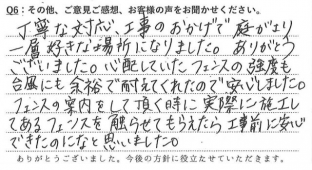 Q6：その他、ご意見ご感想、お客様の声をお聞かせください。
丁寧な対応、工事のおかげで庭がより
一層好きな場所になりました。ありがとう
ございました。心配していたフェンスの強度も
台風にも余裕で耐えてくれたので安心しました。
フェンスの案内をして頂く時に実際に施工し
てあるフェンスを触らせてもらえたら工事前に安心
できたのになと思いました。
ありがとうございました。今後の方針に役立たせていただきます。